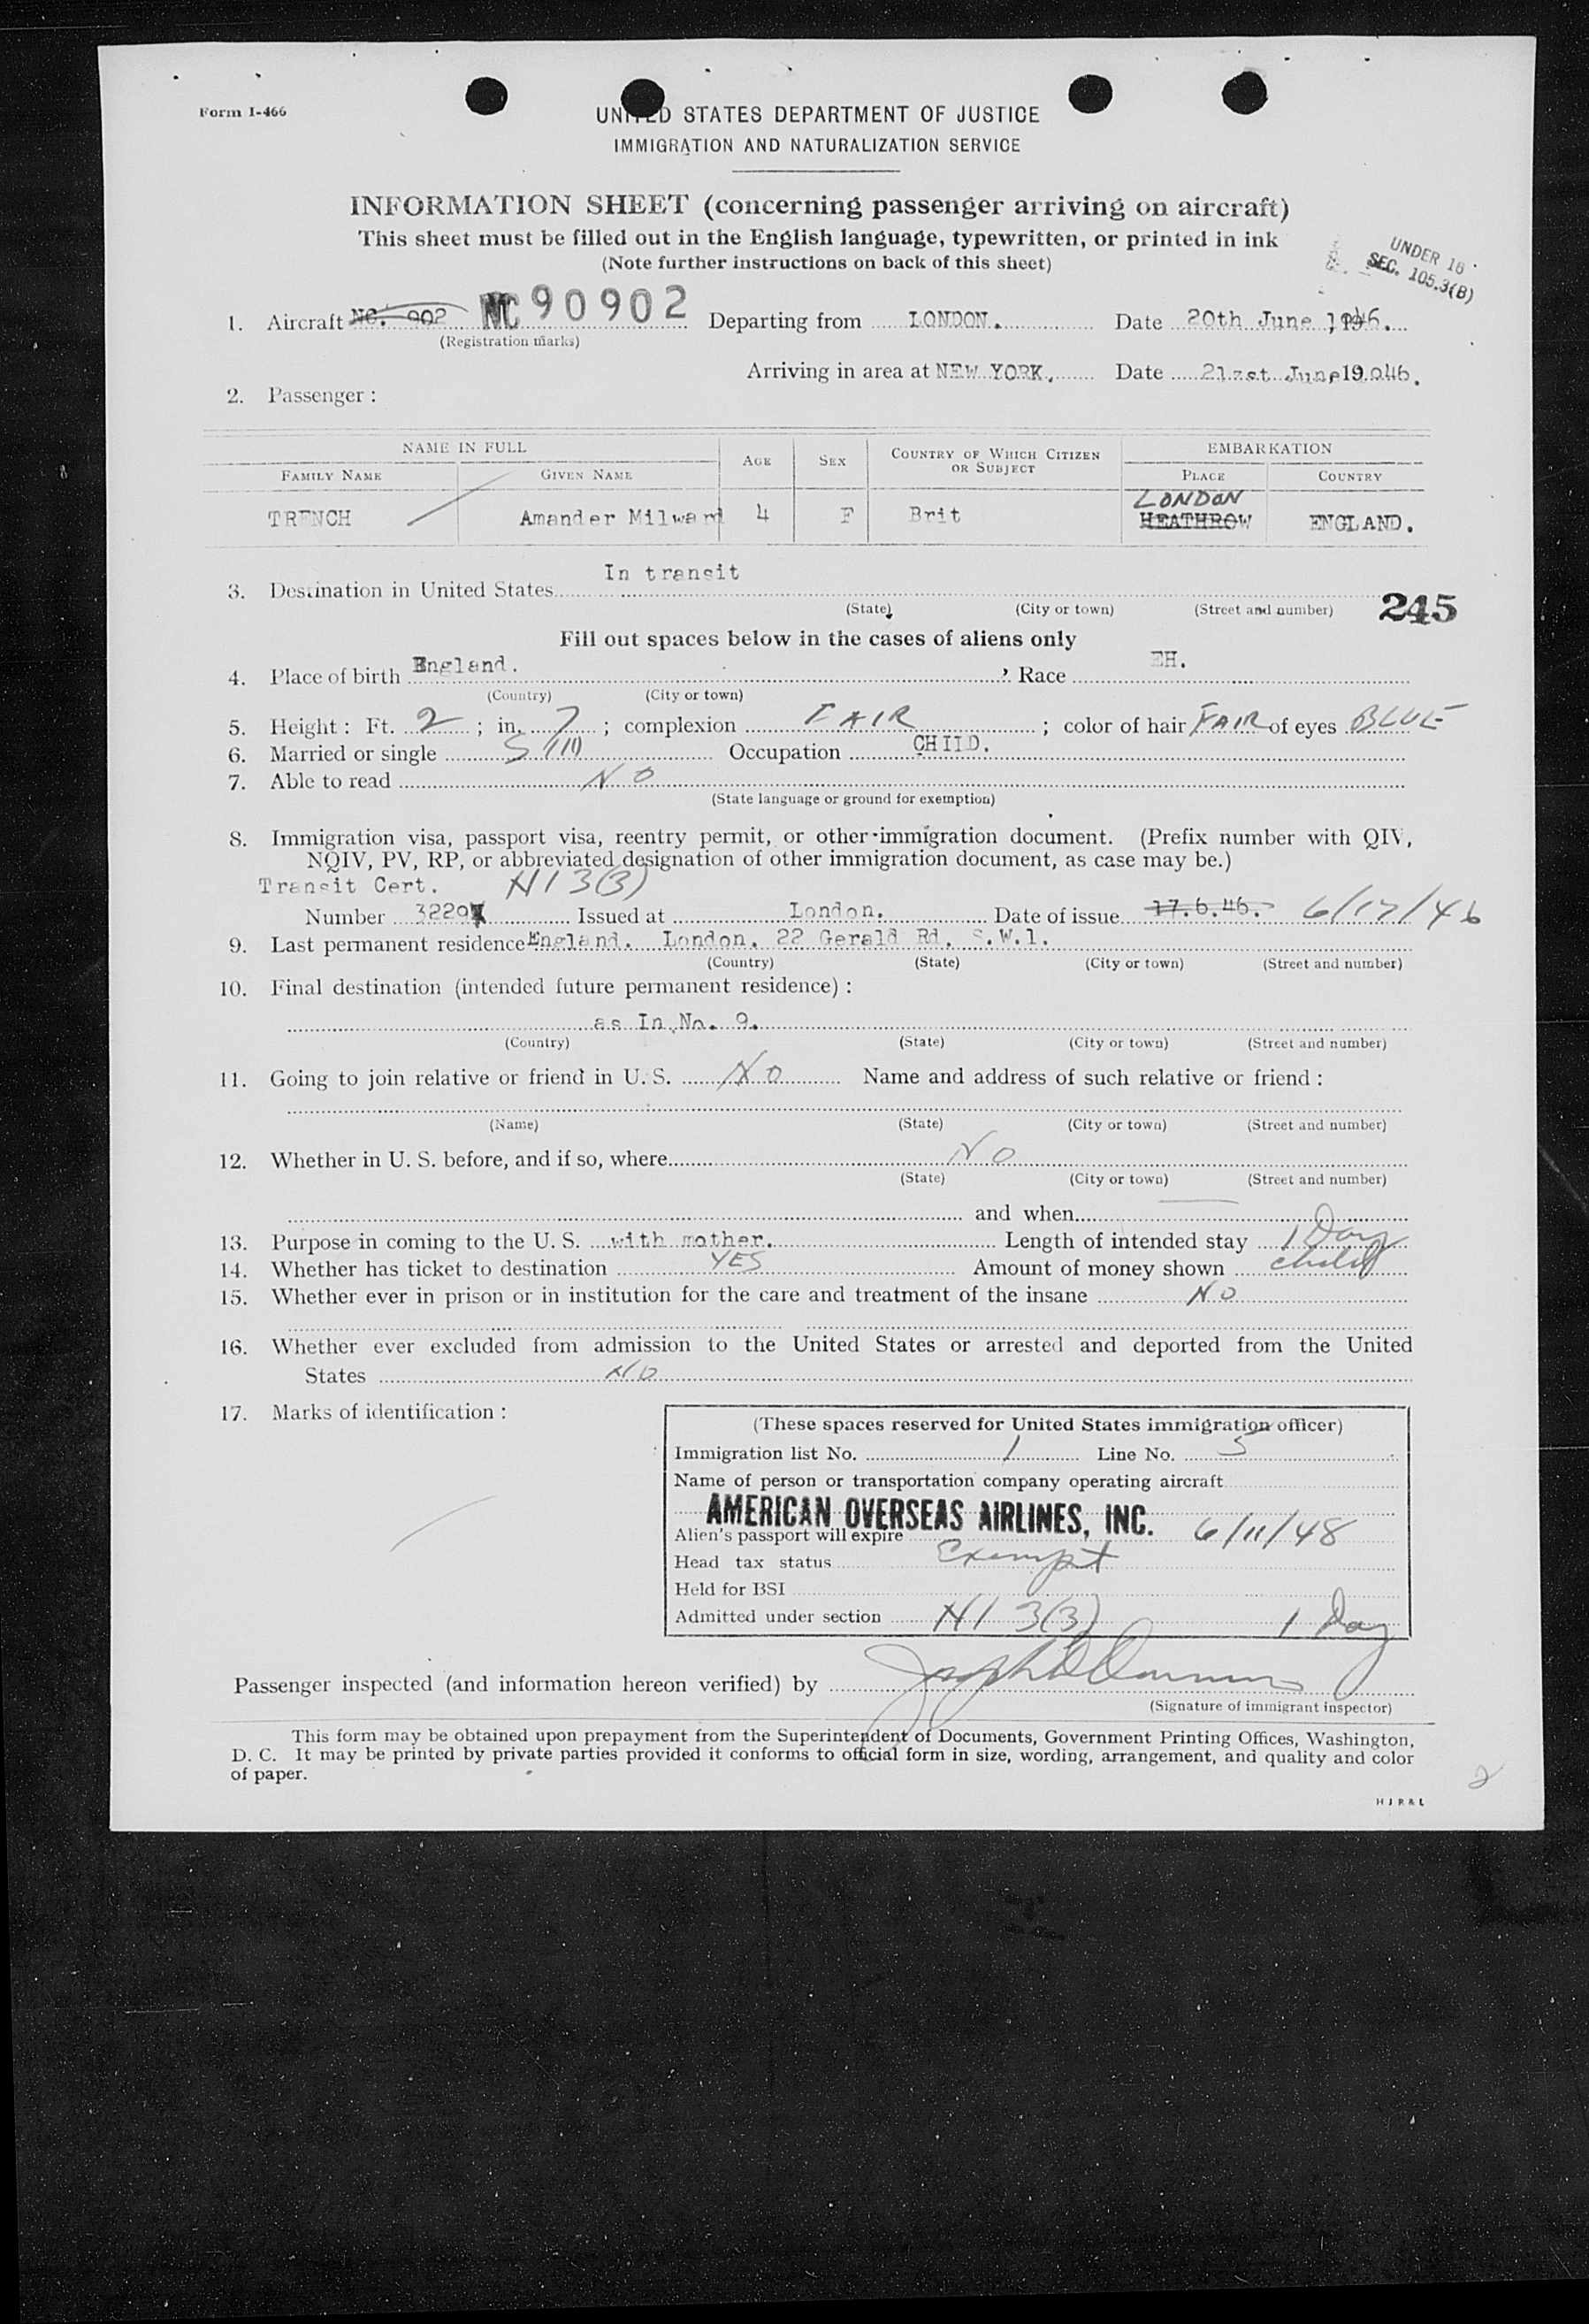 Form I-466
UNITED STATES DEPARTMENT OF JUSTICE
IMMIGRATION AND NATURALIZATION SERVICE
INFORMATION SHEET (concerning passenger arriving on aircraft)
This sheet must be filled out in the English language, typewritten, or printed in ink
(Note further instructions on back of this sheet)
UNDER 16
SEC. 105.3(B)
1. Aircraft NC. 902 NC 90902 Departing from LONDON. Date 20th June, 1946.
(Registration marks)
Arriving in area at NEW YORK. Date 21st June 1946.
2. Passenger :
NAME IN FULL AGE SEX COUNTRY OF WHICH CITIZEN OR SUBJECT EMBARKATION
FAMILY NAME GIVEN NAME PLACE COUNTRY
LONDON
TRENCH Amander Milward 4 F Brit HEATHROW ENGLAND.
In transit
3. Destination in United States
(State) (City or town) (Street and number) 245
Fill out spaces below in the cases of aliens only
4. Place of birth England. , Race EH.
(Country) (City or town)
5. Height : Ft. 2 ; in. 7 ; complexion FAIR ; color of hair FAIR of eyes BLUE
6. Married or single S Occupation CHILD.
7. Able to read NO
(State language or ground for exemption)
8. Immigration visa, passport visa, reentry permit, or other immigration document. (Prefix number with QIV,
NQIV, PV, RP, or abbreviated designation of other immigration document, as case may be.)
Transit Cert. N I 3(3)
Number 3229 Issued at London. Date of issue 17.6.46. 6/17/46
9. Last permanent residence England. London. 22 Gerald Rd. S.W.1.
(Country) (State) (City or town) (Street and number)
10. Final destination (intended future permanent residence) :
as In No. 9.
(Country) (State) (City or town) (Street and number)
11. Going to join relative or friend in U. S. NO Name and address of such relative or friend :
(Name) (State) (City or town) (Street and number)
12. Whether in U. S. before, and if so, where NO
(State) (City or town) (Street and number)
and when
13. Purpose in coming to the U. S. with mother. Length of intended stay 1 Day
14. Whether has ticket to destination YES Amount of money shown child
15. Whether ever in prison or in institution for the care and treatment of the insane NO
16. Whether ever excluded from admission to the United States or arrested and deported from the United
States NO
17. Marks of identification :
(These spaces reserved for United States immigration officer)
Immigration list No. 1 Line No. 5
Name of person or transportation company operating aircraft
AMERICAN OVERSEAS AIRLINES, INC.
Alien's passport will expire 6/11/48
Head tax status Exempt
Held for BSI
Admitted under section N I 3(3) 1 Day
Passenger inspected (and information hereon verified) by
(Signature of immigrant inspector)
This form may be obtained upon prepayment from the Superintendent of Documents, Government Printing Offices, Washington,
D. C. It may be printed by private parties provided it conforms to official form in size, wording, arrangement, and quality and color
of paper.
2
H J R & L